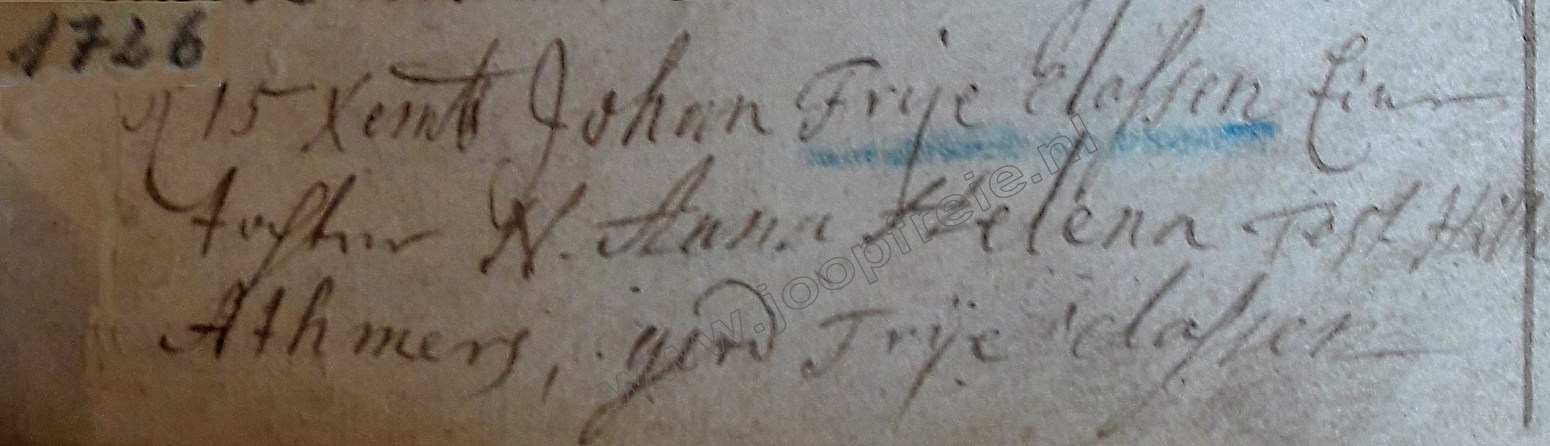 1726
15 Xembr Johan Frije Classen Eine
tochter N. Anna Helena Test.
Athmers, gerd Frije Classen
www.joopfreie.nl